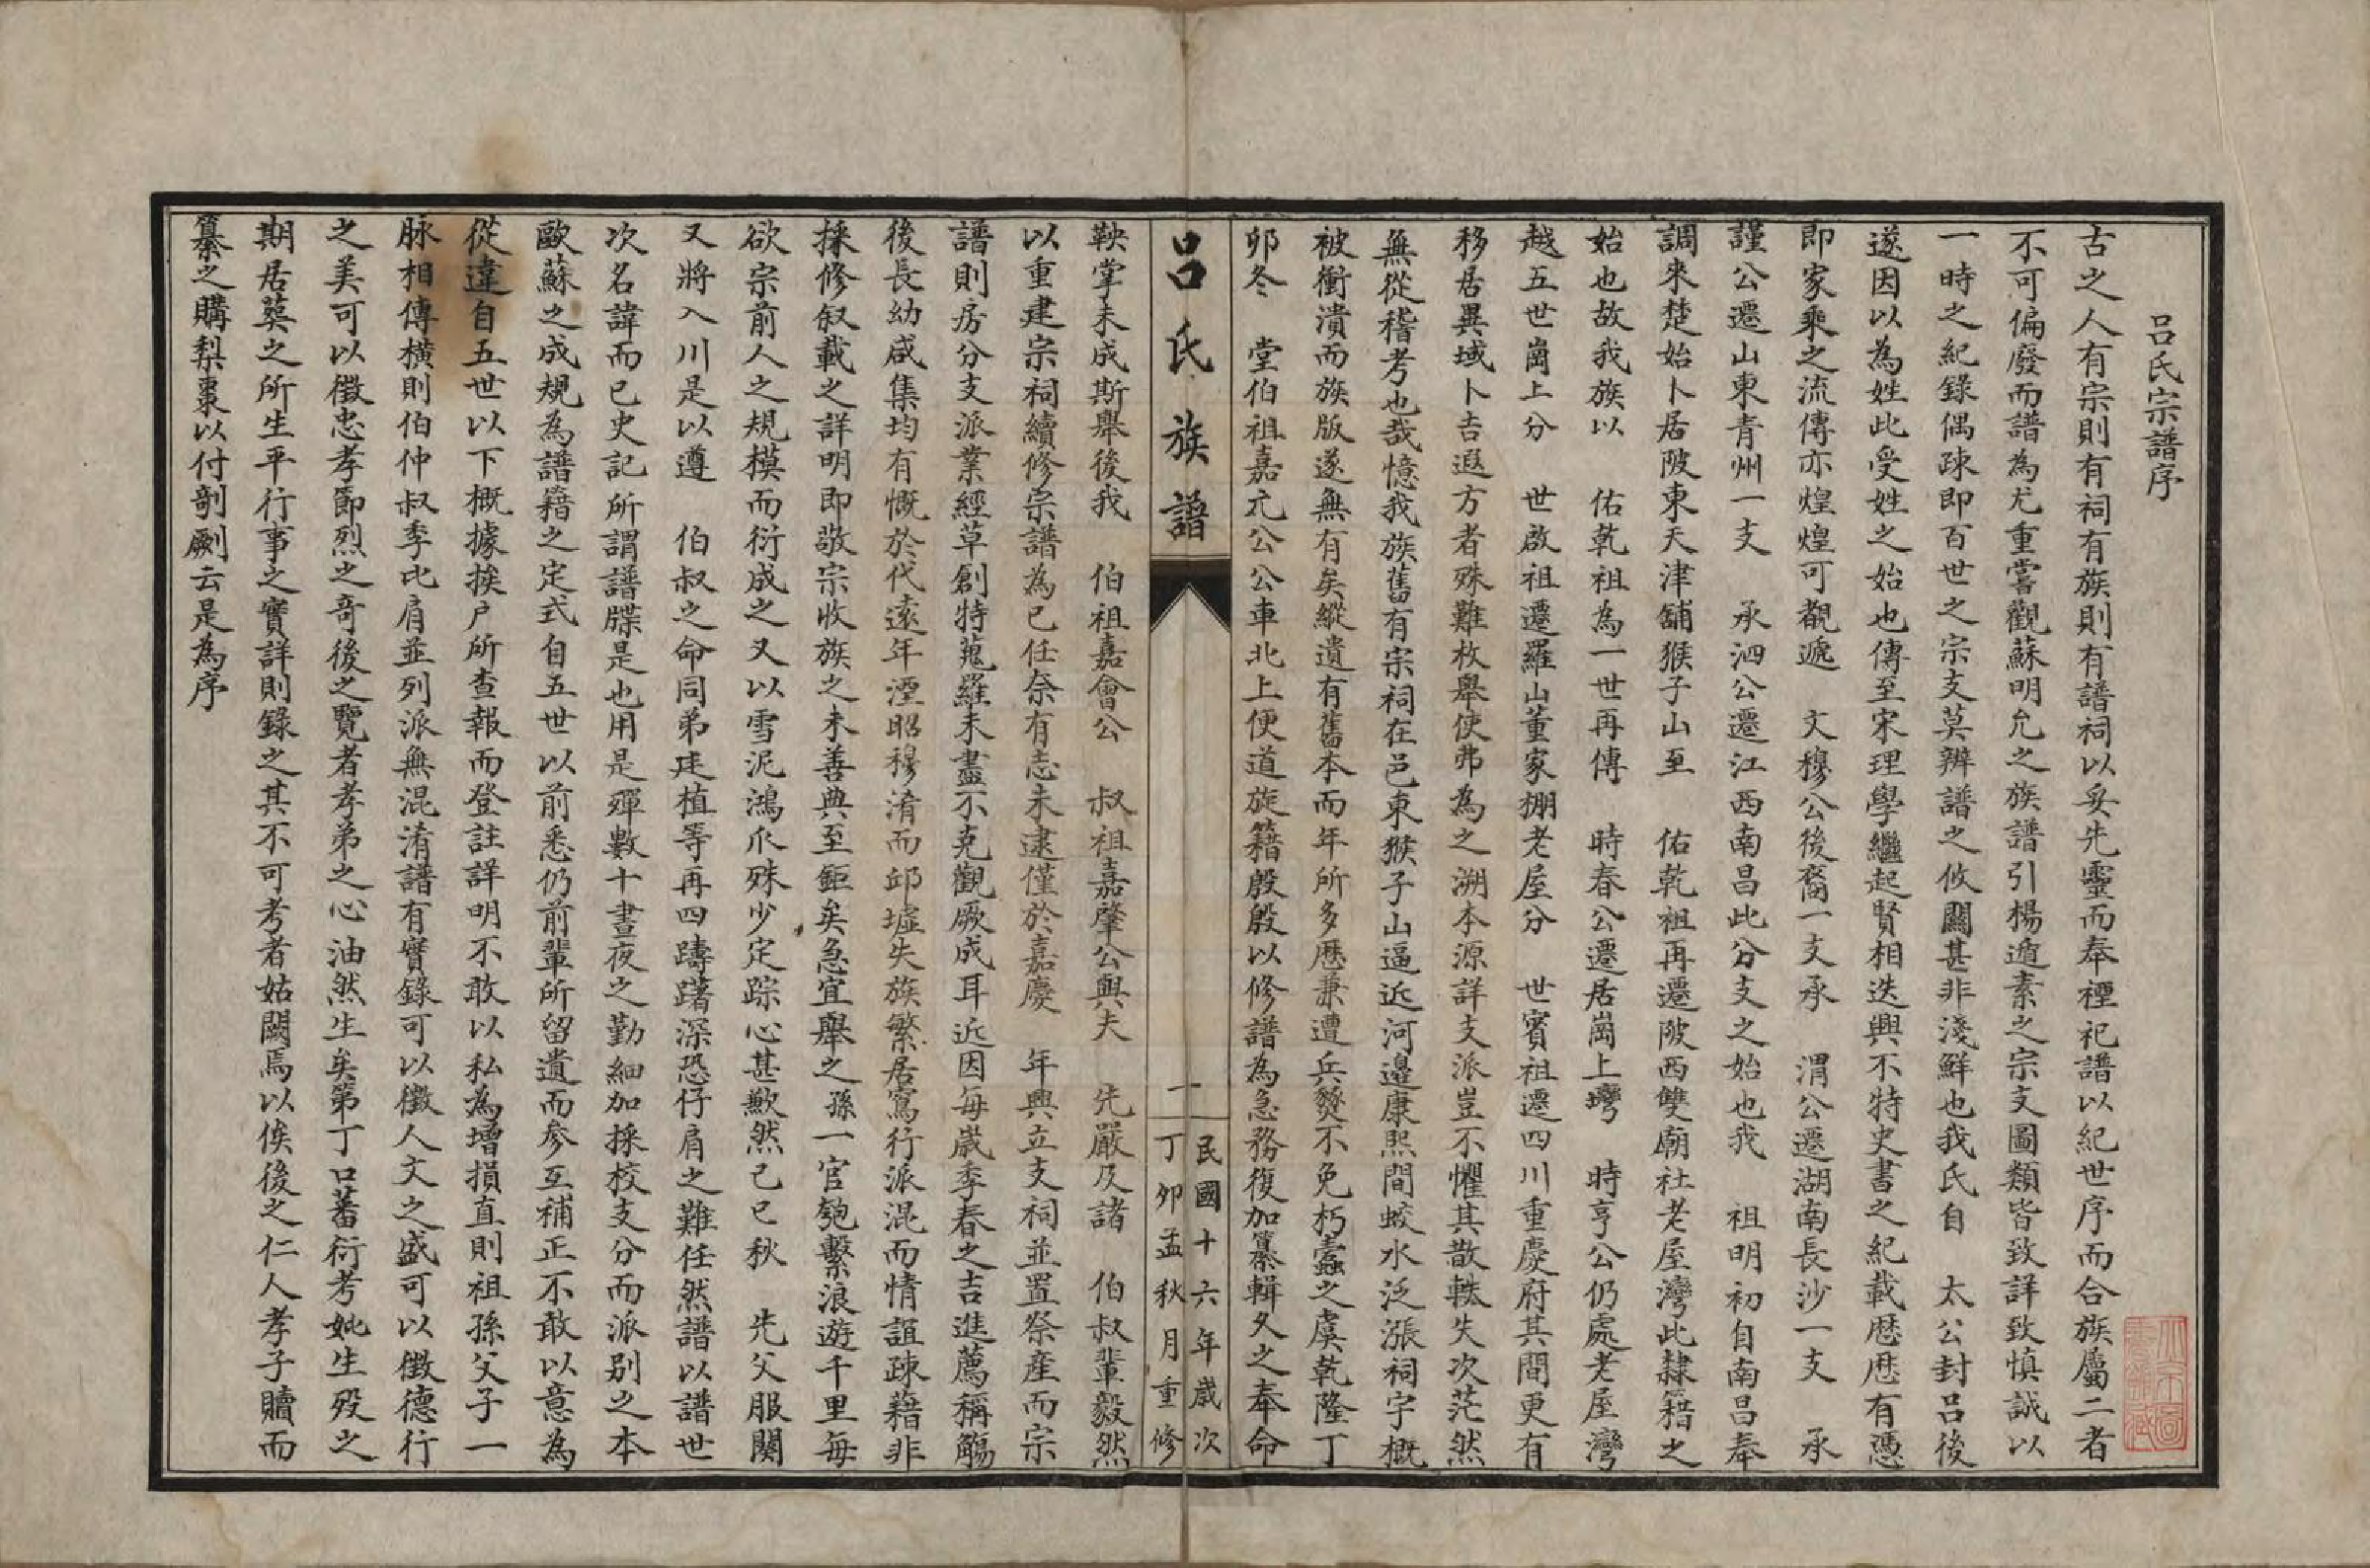 呂氏宗譜序
古之人有宗則有祠有族則有譜祠以妥先靈而奉禋祀譜以紀世序而合族屬二者
不可偏廢而譜為尤重嘗觀蘇明允之族譜引楊遁素之宗支圖類皆致詳致慎誠以
一時之紀錄偶疎即百世之宗支莫辨譜之攸關甚非淺鮮也我氏自 太公封呂後
遂因以為姓此受姓之始也傳至宋理學繼起賢相迭興不特史書之紀載歷歷有憑
即家乘之流傳亦煌煌可覩遞 文穆公後裔一支承 渭公遷湖南長沙一支 承
謹公遷山東青州一支 承泗公遷江西南昌此分支之始也我 祖明初自南昌奉
調來楚始卜居陂東天津舖猴子山至 佑乾祖再遷陂西雙廟社老屋灣此隸籍之
始也故我族以 佑乾祖為一世再傳 時春公遷居崗上灣 時亨公仍處老屋灣
越五世崗上分 世啟祖遷羅山董家棚老屋分 世賓祖遷四川重慶府其間更有
移居異域卜吉遐方者殊難枚舉使弗為之溯本源詳支派豈不懼其散軼失次茫然
無從稽考也哉憶我族舊有宗祠在邑東猴子山逼近河邊康熙間蛟水泛漲祠宇概
被衝潰而族版遂無有矣縱遺有舊本而年所多歷兼遭兵燹不免朽蠹之虞乾隆丁
卯冬 堂伯祖嘉元公公車北上便道旋籍殷殷以修譜為急務復加纂輯久之奉命
呂氏族譜
一
民國十六年歲次
丁卯孟秋月重修
鞅掌未成斯舉後我 伯祖嘉會公 叔祖嘉肇公與夫 先嚴及諸 伯叔輩毅然
以重建宗祠續修宗譜為已任奈有志未逮僅於嘉慶 年興立支祠並置祭產而宗
譜則房分支派業經草創特蒐羅未盡不克觀厥成耳近因每歲季春之吉進薦稱觴
後長幼咸集均有慨於代遠年湮昭穆淆而邱墟失族繁居寫行派混而情誼疎藉非
採修叙載之詳明即敬宗收族之未善典至鉅矣急宜舉之孫一官匏繫浪遊千里每
欲宗前人之規模而衍成之又以雪泥鴻爪殊少定踪心甚歉然己巳秋 先父服闋
又將入川是以遵 伯叔之命同弟廷植等再四躊躇深恐仔肩之難任然譜以譜世
次名諱而已史記所謂譜牒是也用是殫數十晝夜之勤細加採校支分而派别之本
歐蘇之成規為譜籍之定式自五世以前悉仍前輩所留遺而參互補正不敢以意為
從違自五世以下概據挨户所查報而登註詳明不敢以私為增損直則祖孫父子一
脉相傳橫則伯仲叔季比肩並列派無混淆譜有實錄可以徵人文之盛可以徵德行
之美可以徵忠孝節烈之奇後之覽者孝弟之心油然生矣第丁口蕃衍考妣生殁之
期居葬之所生平行事之實詳則錄之其不可考者姑闕焉以俟後之仁人孝子贖而
纂之購梨棗以付剞劂云是為序